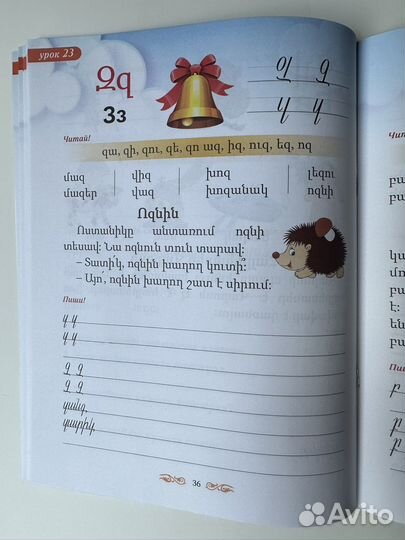 урок 23
Զզ
Զ Զ
Зз
զ զ
Читай!
զա, զի, զու, զե, զո ազ, իզ, ուզ, եզ, ոզ
մազ վիզ խոզ լեզու
մազեր վազ խոզանակ ոզնի
Ոզնին
Ոստանիկը անտառում ոզնի
տեսավ: Նա ոզնուն տուն տարավ:
– Տատի՛կ, ոզնին խաղող կուտի՞:
– Այո՛, ոզնին խաղող շատ է սիրում:
Пиши!
զ զ
զ զ
Զ Զ
Զ Զ
զանգ
զատիկ
36
Avito
Чит
բա
բա
կա
է:
բա
Пи
բ
բ
բ